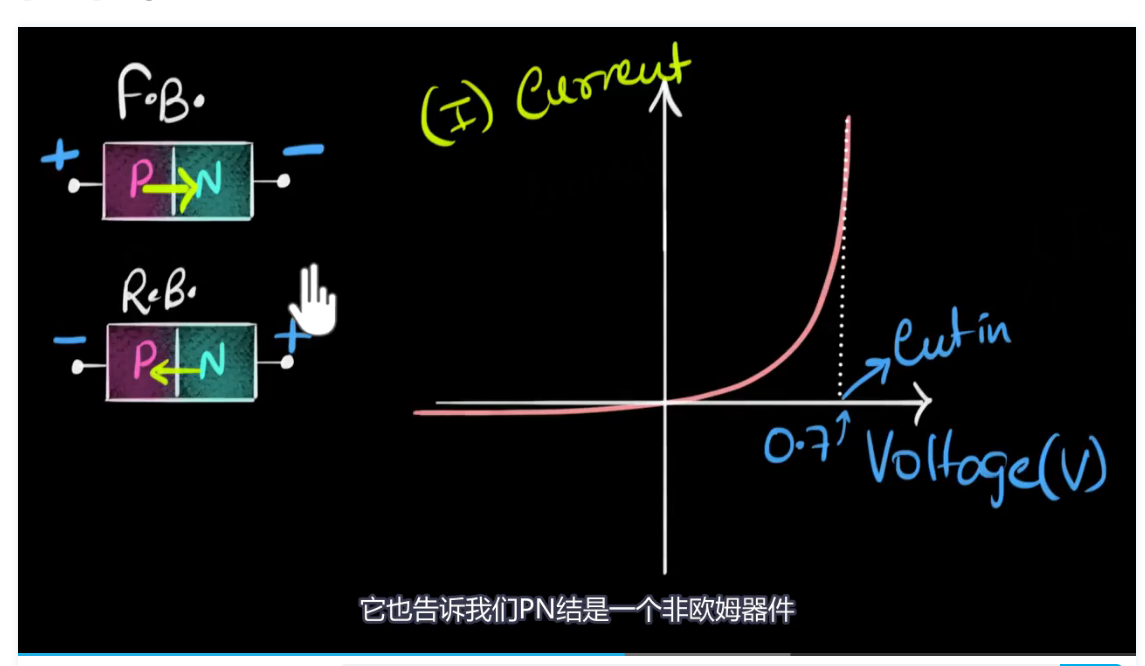 F.B.
+ −
P N
R.B.
− +
P N
(I) Current
Cut in
0.7
Voltage(V)
它也告诉我们PN结是一个非欧姆器件